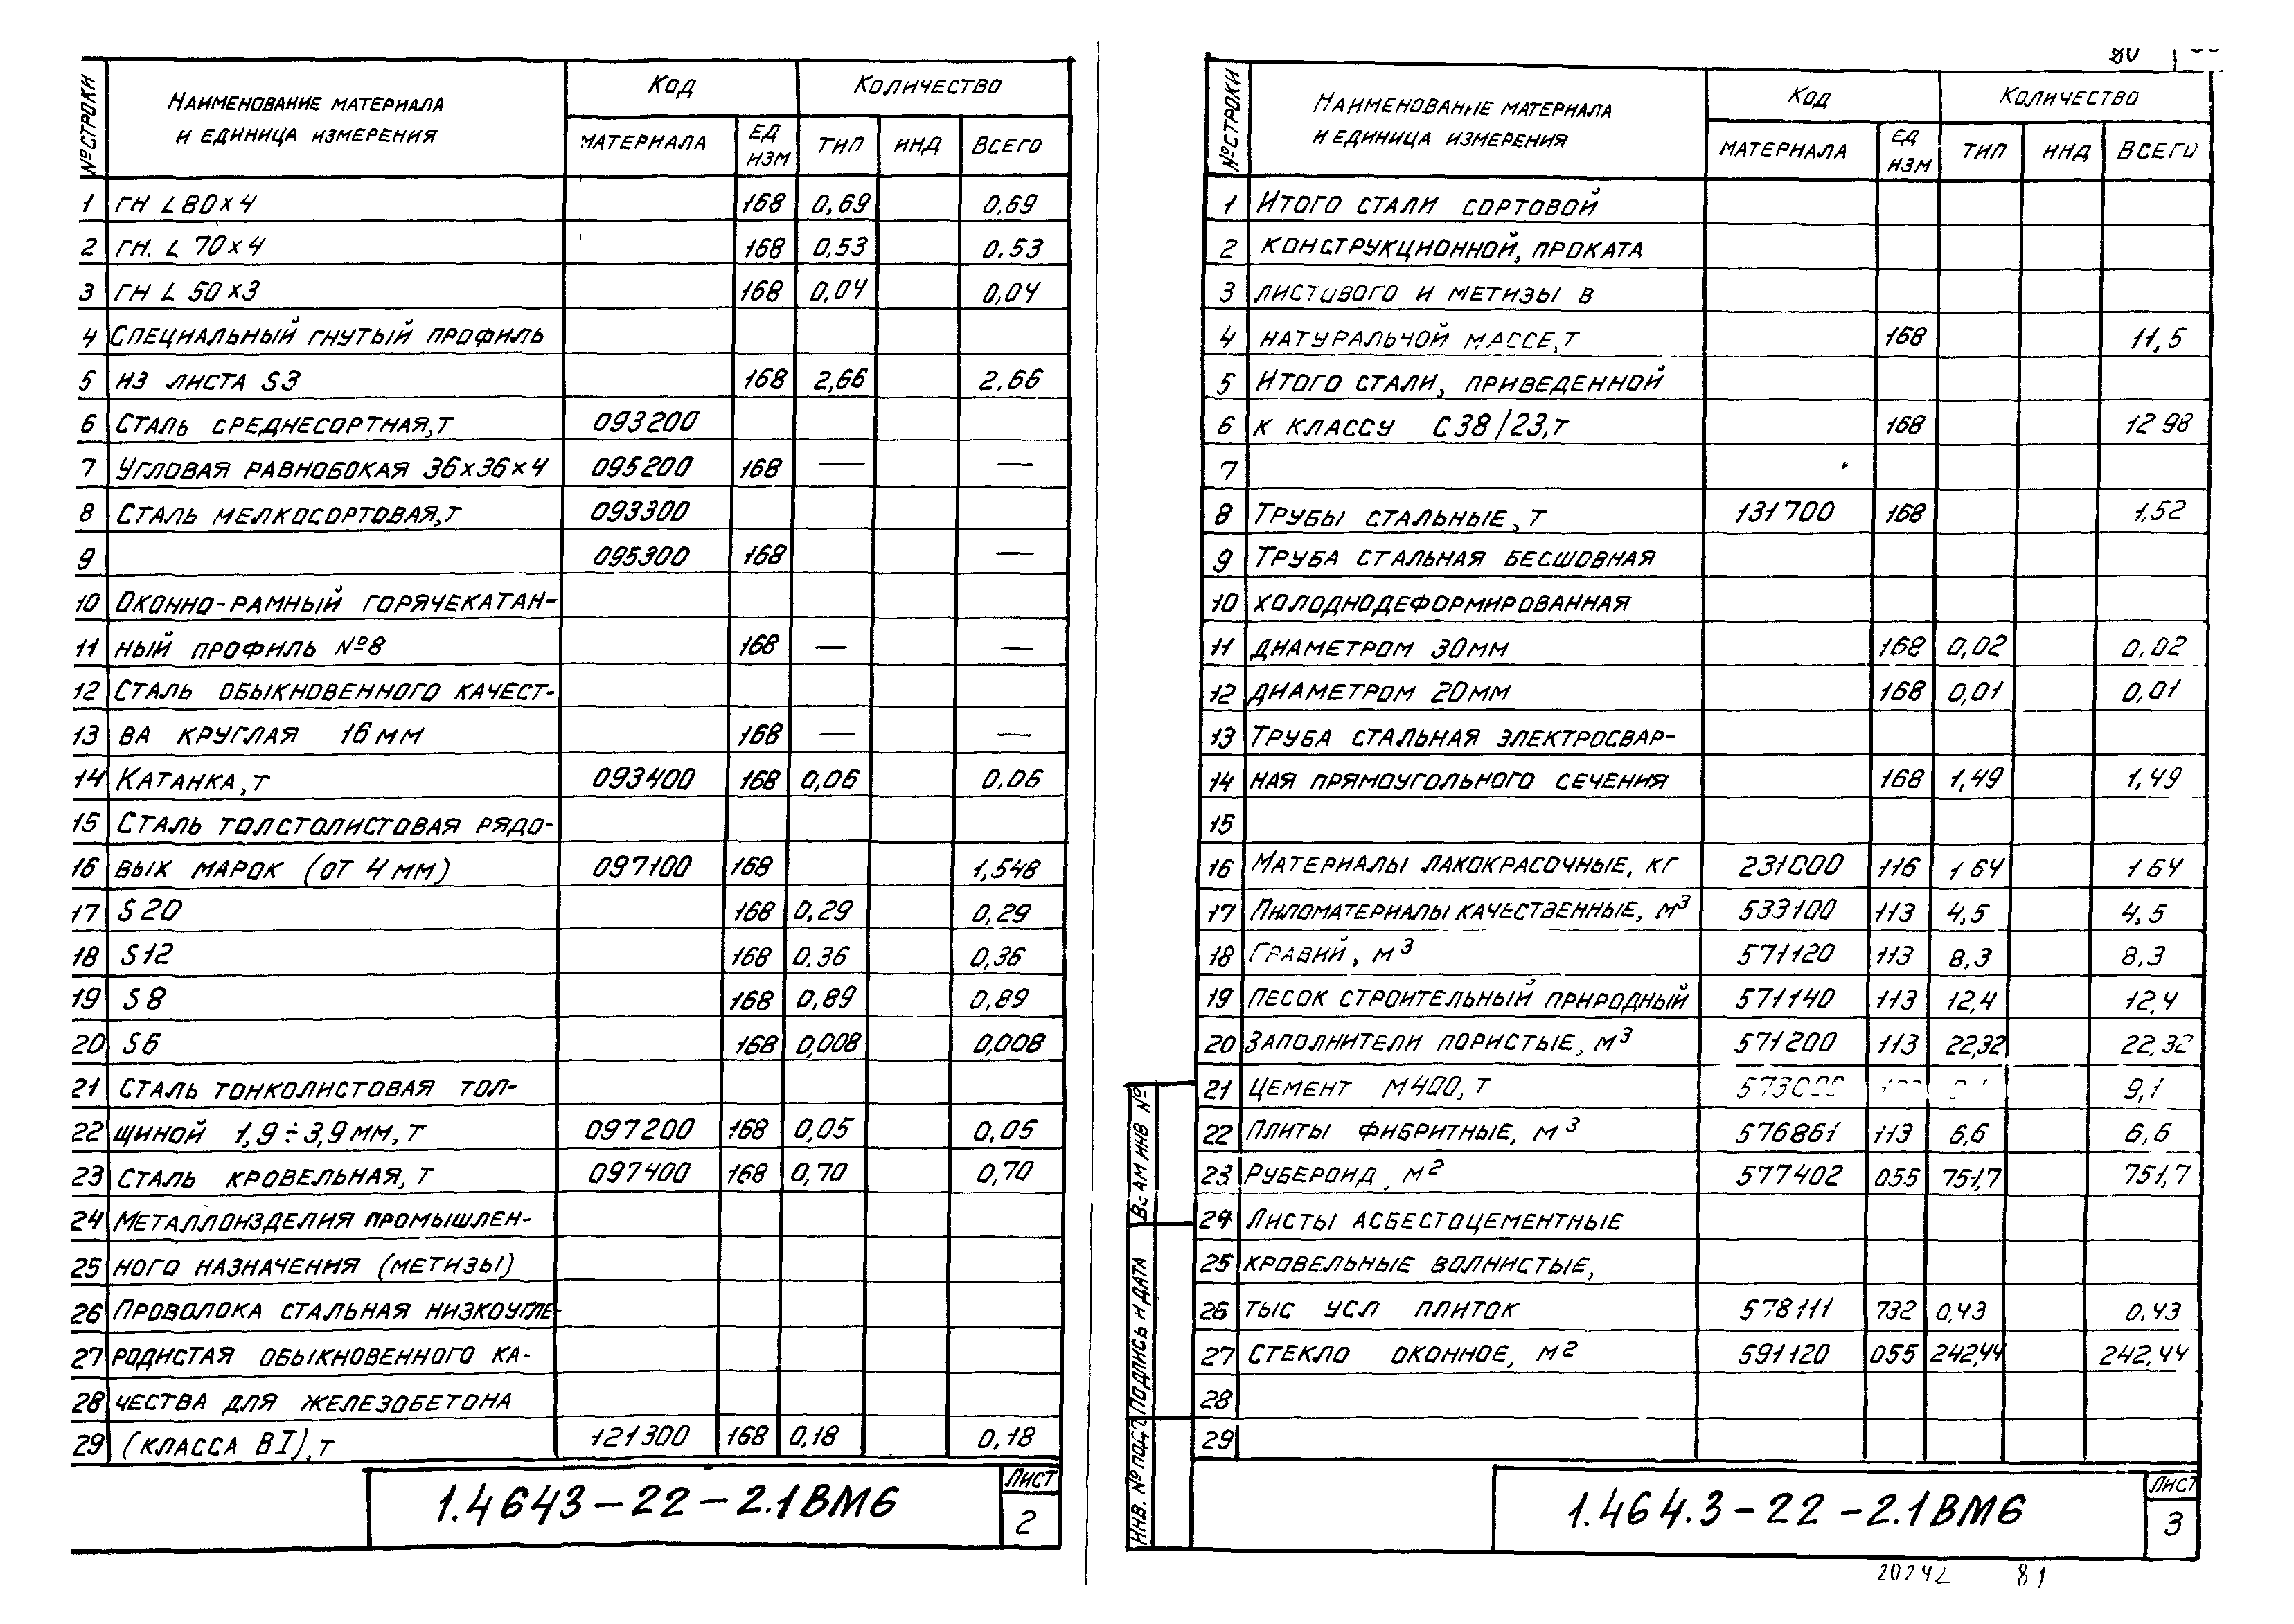 № СТРОКИ НАИМЕНОВАНИЕ МАТЕРИАЛА И ЕДИНИЦА ИЗМЕРЕНИЯ КОД КОЛИЧЕСТВО
МАТЕРИАЛА ЕД ИЗМ ТИП ИНД ВСЕГО
1 ГН L 80×4 168 0,69 0,69
2 ГН. L 70×4 168 0,53 0,53
3 ГН L 50×3 168 0,04 0,04
4 СПЕЦИАЛЬНЫЙ ГНУТЫЙ ПРОФИЛЬ
5 ИЗ ЛИСТА S3 168 2,66 2,66
6 СТАЛЬ СРЕДНЕСОРТНАЯ, Т 093200
7 УГЛОВАЯ РАВНОБОКАЯ 36×36×4 095200 168 — —
8 СТАЛЬ МЕЛКОСОРТОВАЯ, Т 093300
9 095300 168 —
10 ОКОННО-РАМНЫЙ ГОРЯЧЕКАТАН-
11 НЫЙ ПРОФИЛЬ №8 168 — —
12 СТАЛЬ ОБЫКНОВЕННОГО КАЧЕСТ-
13 ВА КРУГЛАЯ 16 ММ 168 — —
14 КАТАНКА, Т 093400 168 0,06 0,06
15 СТАЛЬ ТОЛСТОЛИСТОВАЯ РЯДО-
16 ВЫХ МАРОК (ОТ 4 ММ) 097100 168 1,548
17 S 20 168 0,29 0,29
18 S 12 168 0,36 0,36
19 S 8 168 0,89 0,89
20 S 6 168 0,008 0,008
21 СТАЛЬ ТОНКОЛИСТОВАЯ ТОЛ-
22 ЩИНОЙ 1,9÷3,9 ММ, Т 097200 168 0,05 0,05
23 СТАЛЬ КРОВЕЛЬНАЯ, Т 097400 168 0,70 0,70
24 МЕТАЛЛОИЗДЕЛИЯ ПРОМЫШЛЕН-
25 НОГО НАЗНАЧЕНИЯ (МЕТИЗЫ)
26 ПРОВОЛОКА СТАЛЬНАЯ НИЗКОУГЛЕ-
27 РОДИСТАЯ ОБЫКНОВЕННОГО КА-
28 ЧЕСТВА ДЛЯ ЖЕЛЕЗОБЕТОНА
29 (КЛАССА ВI), Т 121300 168 0,18 0,18
1.4643-22-2.1ВМ6 ЛИСТ 2
80
№ СТРОКИ НАИМЕНОВАНИЕ МАТЕРИАЛА И ЕДИНИЦА ИЗМЕРЕНИЯ КОД КОЛИЧЕСТВО
МАТЕРИАЛА ЕД ИЗМ ТИП ИНД ВСЕГО
1 ИТОГО СТАЛИ СОРТОВОЙ
2 КОНСТРУКЦИОННОЙ, ПРОКАТА
3 ЛИСТОВОГО И МЕТИЗЫ В
4 НАТУРАЛЬНОЙ МАССЕ, Т 168 11,5
5 ИТОГО СТАЛИ, ПРИВЕДЕННОЙ
6 К КЛАССУ С 38/23, Т 168 12 98
7
8 ТРУБЫ СТАЛЬНЫЕ, Т 131700 168 1,52
9 ТРУБА СТАЛЬНАЯ БЕСШОВНАЯ
10 ХОЛОДНОДЕФОРМИРОВАННАЯ
11 ДИАМЕТРОМ 30 ММ 168 0,02 0,02
12 ДИАМЕТРОМ 20 ММ 168 0,01 0,01
13 ТРУБА СТАЛЬНАЯ ЭЛЕКТРОСВАР-
14 НАЯ ПРЯМОУГОЛЬНОГО СЕЧЕНИЯ 168 1,49 1,49
15
16 МАТЕРИАЛЫ ЛАКОКРАСОЧНЫЕ, КГ 231000 116 1 64 1 64
17 ПИЛОМАТЕРИАЛЫ КАЧЕСТВЕННЫЕ, М³ 533100 113 4,5 4,5
18 ГРАВИЙ, М³ 571120 113 8,3 8,3
19 ПЕСОК СТРОИТЕЛЬНЫЙ ПРИРОДНЫЙ 571140 113 12,4 12,4
20 ЗАПОЛНИТЕЛИ ПОРИСТЫЕ, М³ 571200 113 22,32 22,32
21 ЦЕМЕНТ М400, Т 9,1
22 ПЛИТЫ ФИБРИТНЫЕ, М³ 576861 113 6,6 6,6
23 РУБЕРОИД, М² 577402 055 751,7 751,7
24 ЛИСТЫ АСБЕСТОЦЕМЕНТНЫЕ
25 КРОВЕЛЬНЫЕ ВОЛНИСТЫЕ,
26 ТЫС УСЛ ПЛИТОК 578111 732 0,43 0,43
27 СТЕКЛО ОКОННОЕ, М² 591120 055 242,44 242,44
28
29
ИНВ. № ПОДЛ ПОДПИСЬ И ДАТА ВЗАМ ИНВ №
1.464.3-22-2.1ВМ6 ЛИСТ 3
20242 81